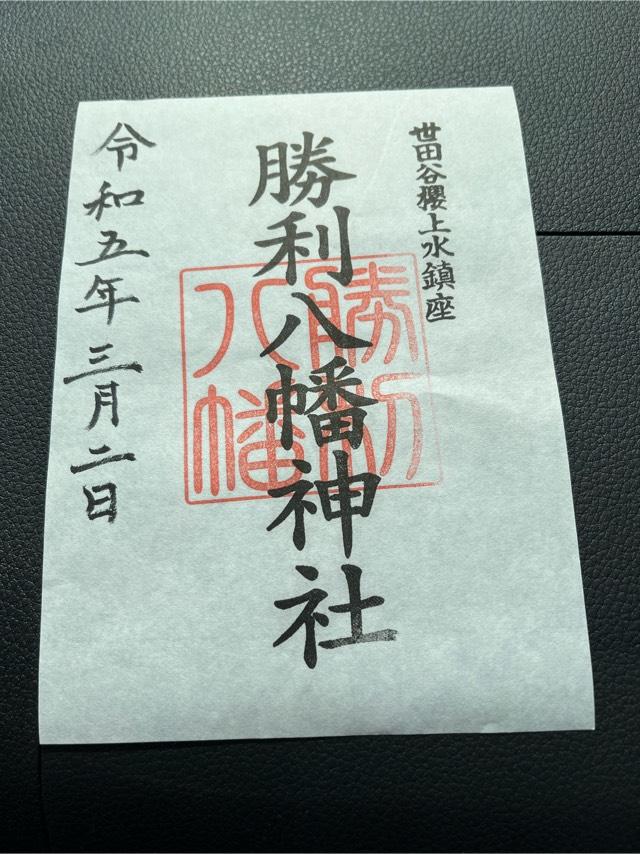 世田谷櫻上水鎮座
勝利八幡神社
勝利
八幡
令和五年三月二日